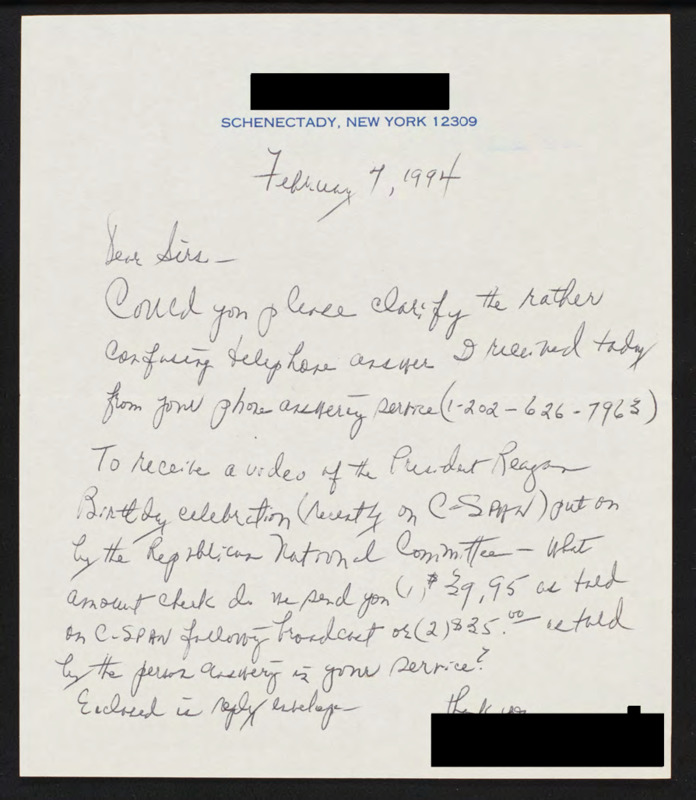 SCHENECTADY, NEW YORK 12309
February 7, 1994
Dear Sirs -
Could you please clarify the rather
confusing telephone answer I received today
from your phone answering service (1-202-626-7963)
To receive a video of the President Reagan
Birthday celebration (recently on C-SPAN) put on
by the Republican National Committee - What
amount check do we send you (1) $39,95 as told
on C-SPAN following broadcast or (2) $35.00 as told
by the person answering in your service?
Enclosed is reply envelope
thank you